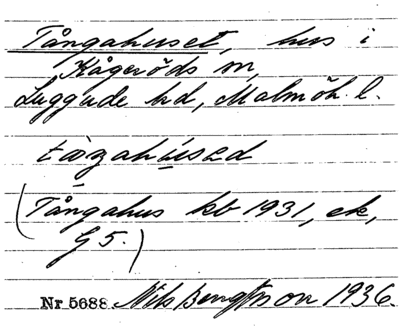 Tångahuset, hus i
Kågeröds sn,
Luggude hd, Malmöh. l.
(Tångahus kb 1931, ek,
G 5.)
Nr 5688. Nils Bengtsson 1936.